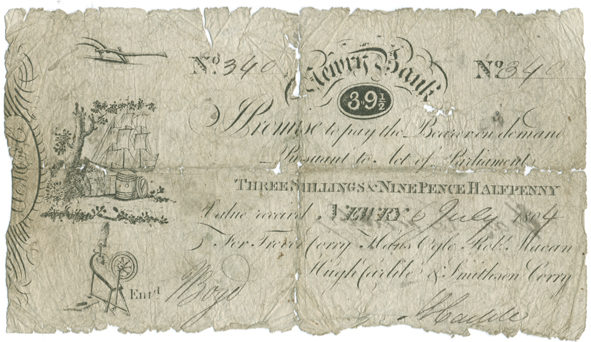 No. 340 Newry Bank No. 340
3·9½
I Promise to pay the Bearer on demand
Pursuant to Act of Parliament
THREE SHILLINGS & NINE PENCE HALFPENNY
Value receiv'd NEWRY 6 July 1804
For Trevor Corry Ogle Robt. Macan
Hugh Carlile & Smithson Corry
Entd. Boyd
Carlile